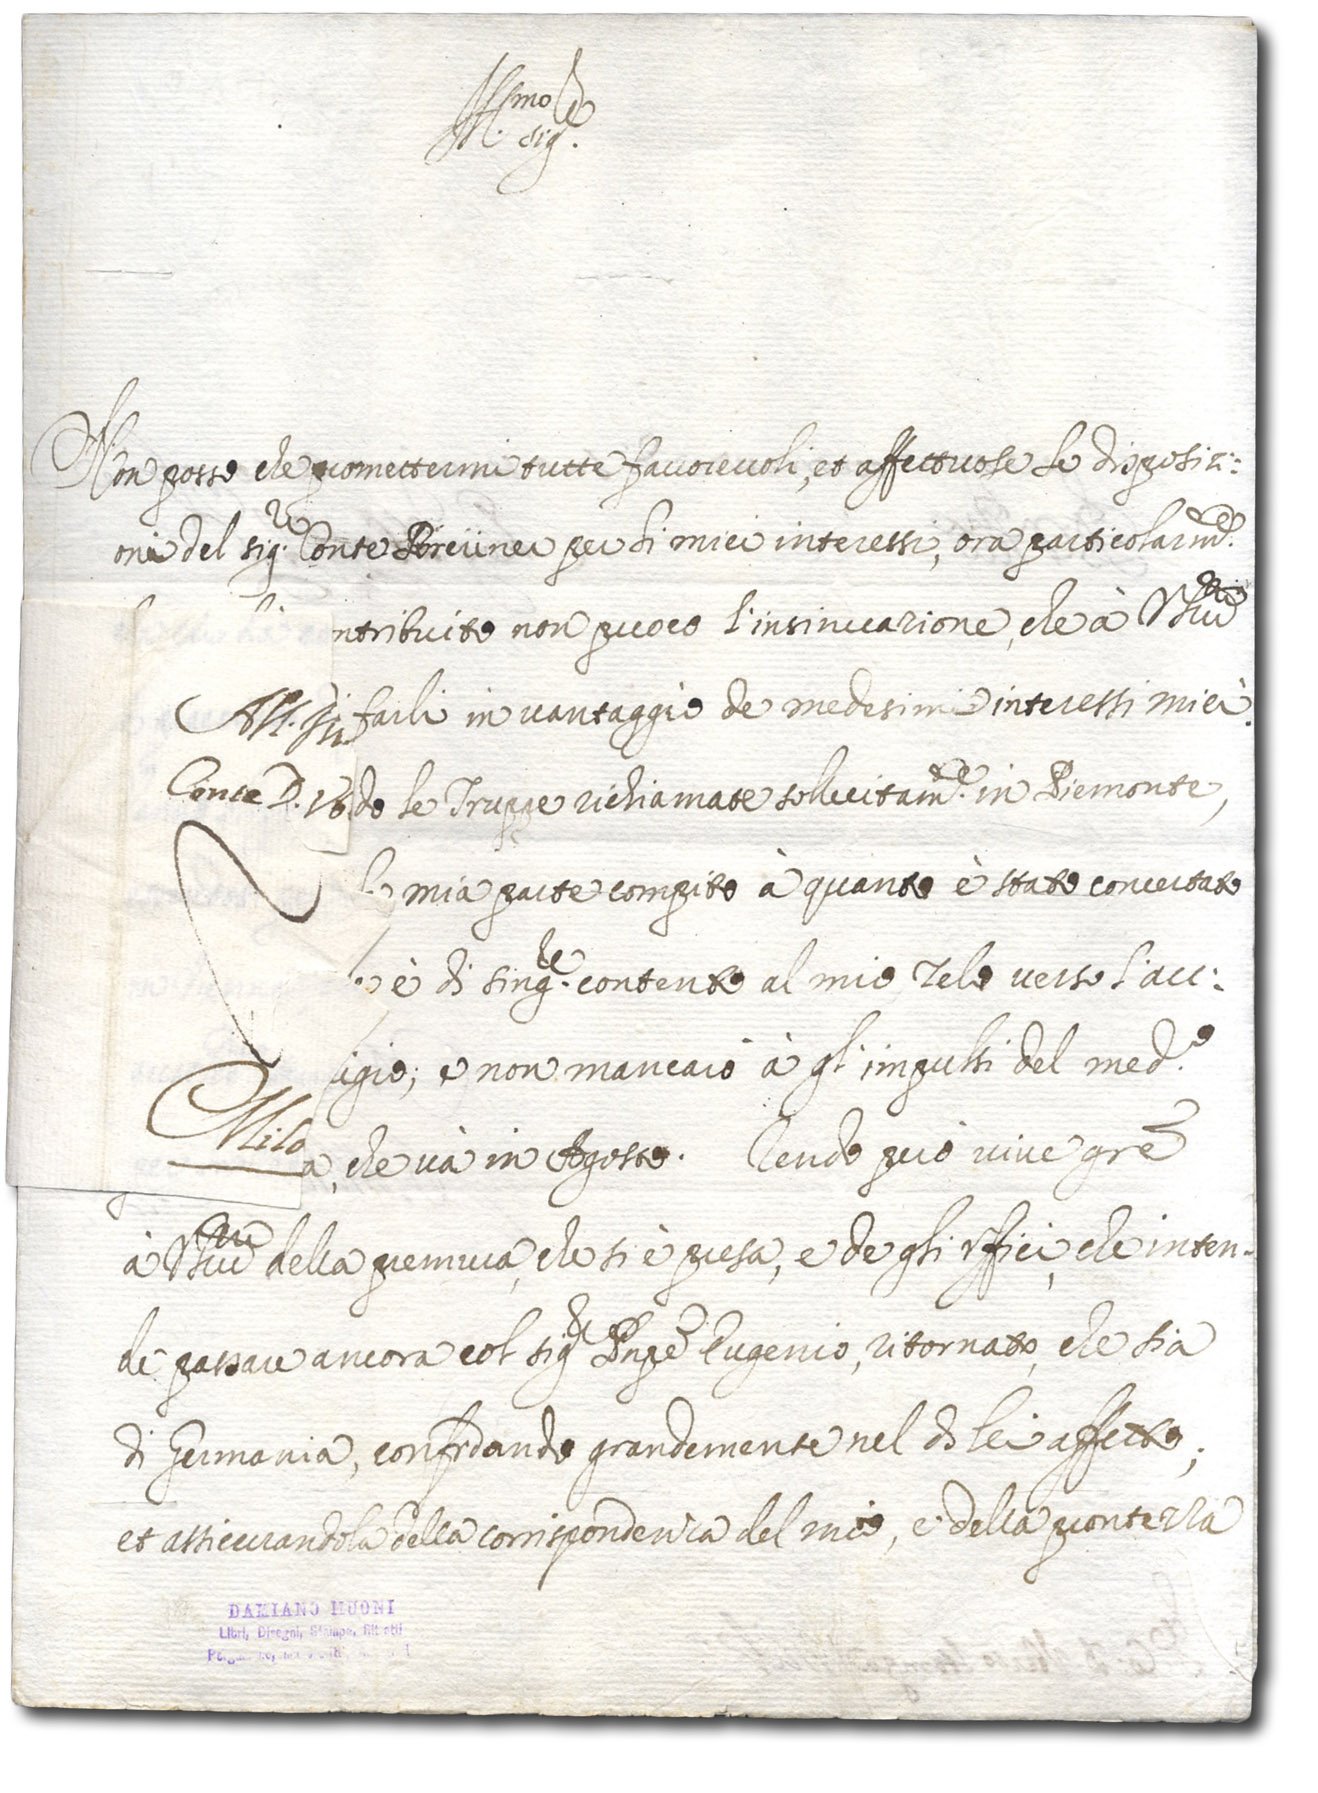 Ill.mo
Sig.re
Non posso che promettermi tutte favorevoli, et affettuose le disposizi:
oni del sig.re Conte Breiiner per li miei interessi, ora particolarm.te
ntribuito non puoco l'insinuazione, che à
farli in vantaggio de medesimi interessi miei.
Conte D.
do le Truppe richiamate sollecitam.te in Piemonte,
mia parte compito à quanto è stato concertato
è di sing.re contento al mio zelo verso l'acc:
igio; e non mancarò à gl'impulsi del med.o
Mila
a, che và in Agosto. Rendo però vive gre
à della premura, che si è presa, e de gli Uffici, che inten-
de passare ancora col sig.r Pnpe Eugenio, ritornato, che sia
di Germania, confidando grandemente nel di lei affetto;
et assicurandola della corrispondenza del mio, e della prontezza
DAMIANO MUONI
Libri, Disegni, Stampe, Ritratti